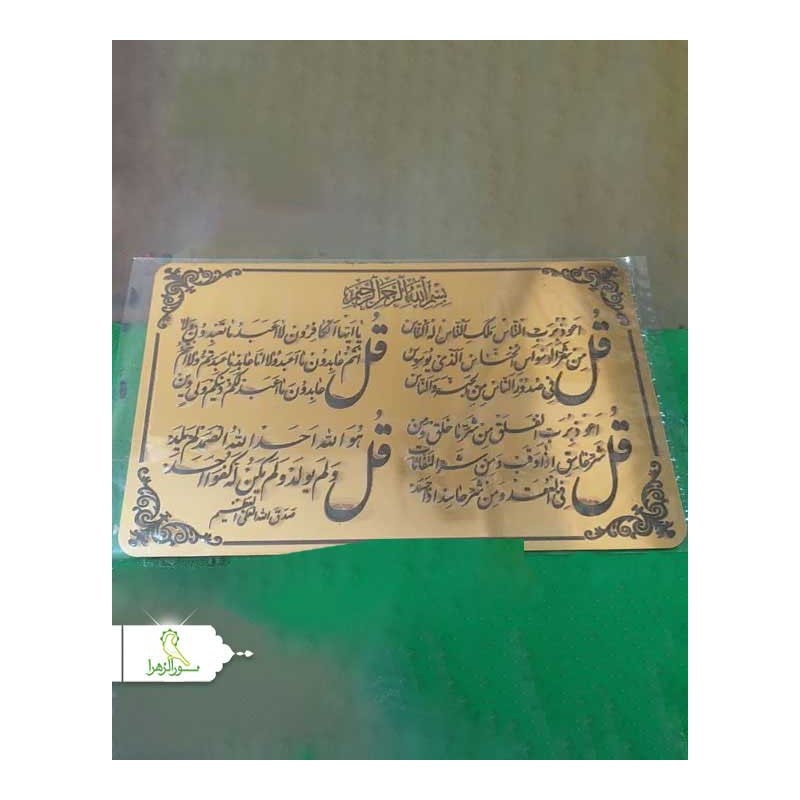 بسم الله الرحمن الرحیم
قل
اعوذ برب الناس ملک الناس اله الناس
من شر الوسواس الخناس الذی یوسوس
فی صدور الناس من الجنة والناس
قل
یا ایها الکافرون لا اعبد ما تعبدون ولا
انتم عابدون ما اعبد ولا انا عابد ما عبدتم ولا انتم
عابدون ما اعبد لکم دینکم ولی دین
قل
اعوذ برب الفلق من شر ما خلق و من
شر غاسق اذا وقب و من شر النفاثات
فی العقد و من شر حاسد اذا حسد
قل
هو الله احد الله الصمد لم یلد
ولم یولد ولم یکن له کفوا احد
صدق الله العلی العظیم
نورالزهرا